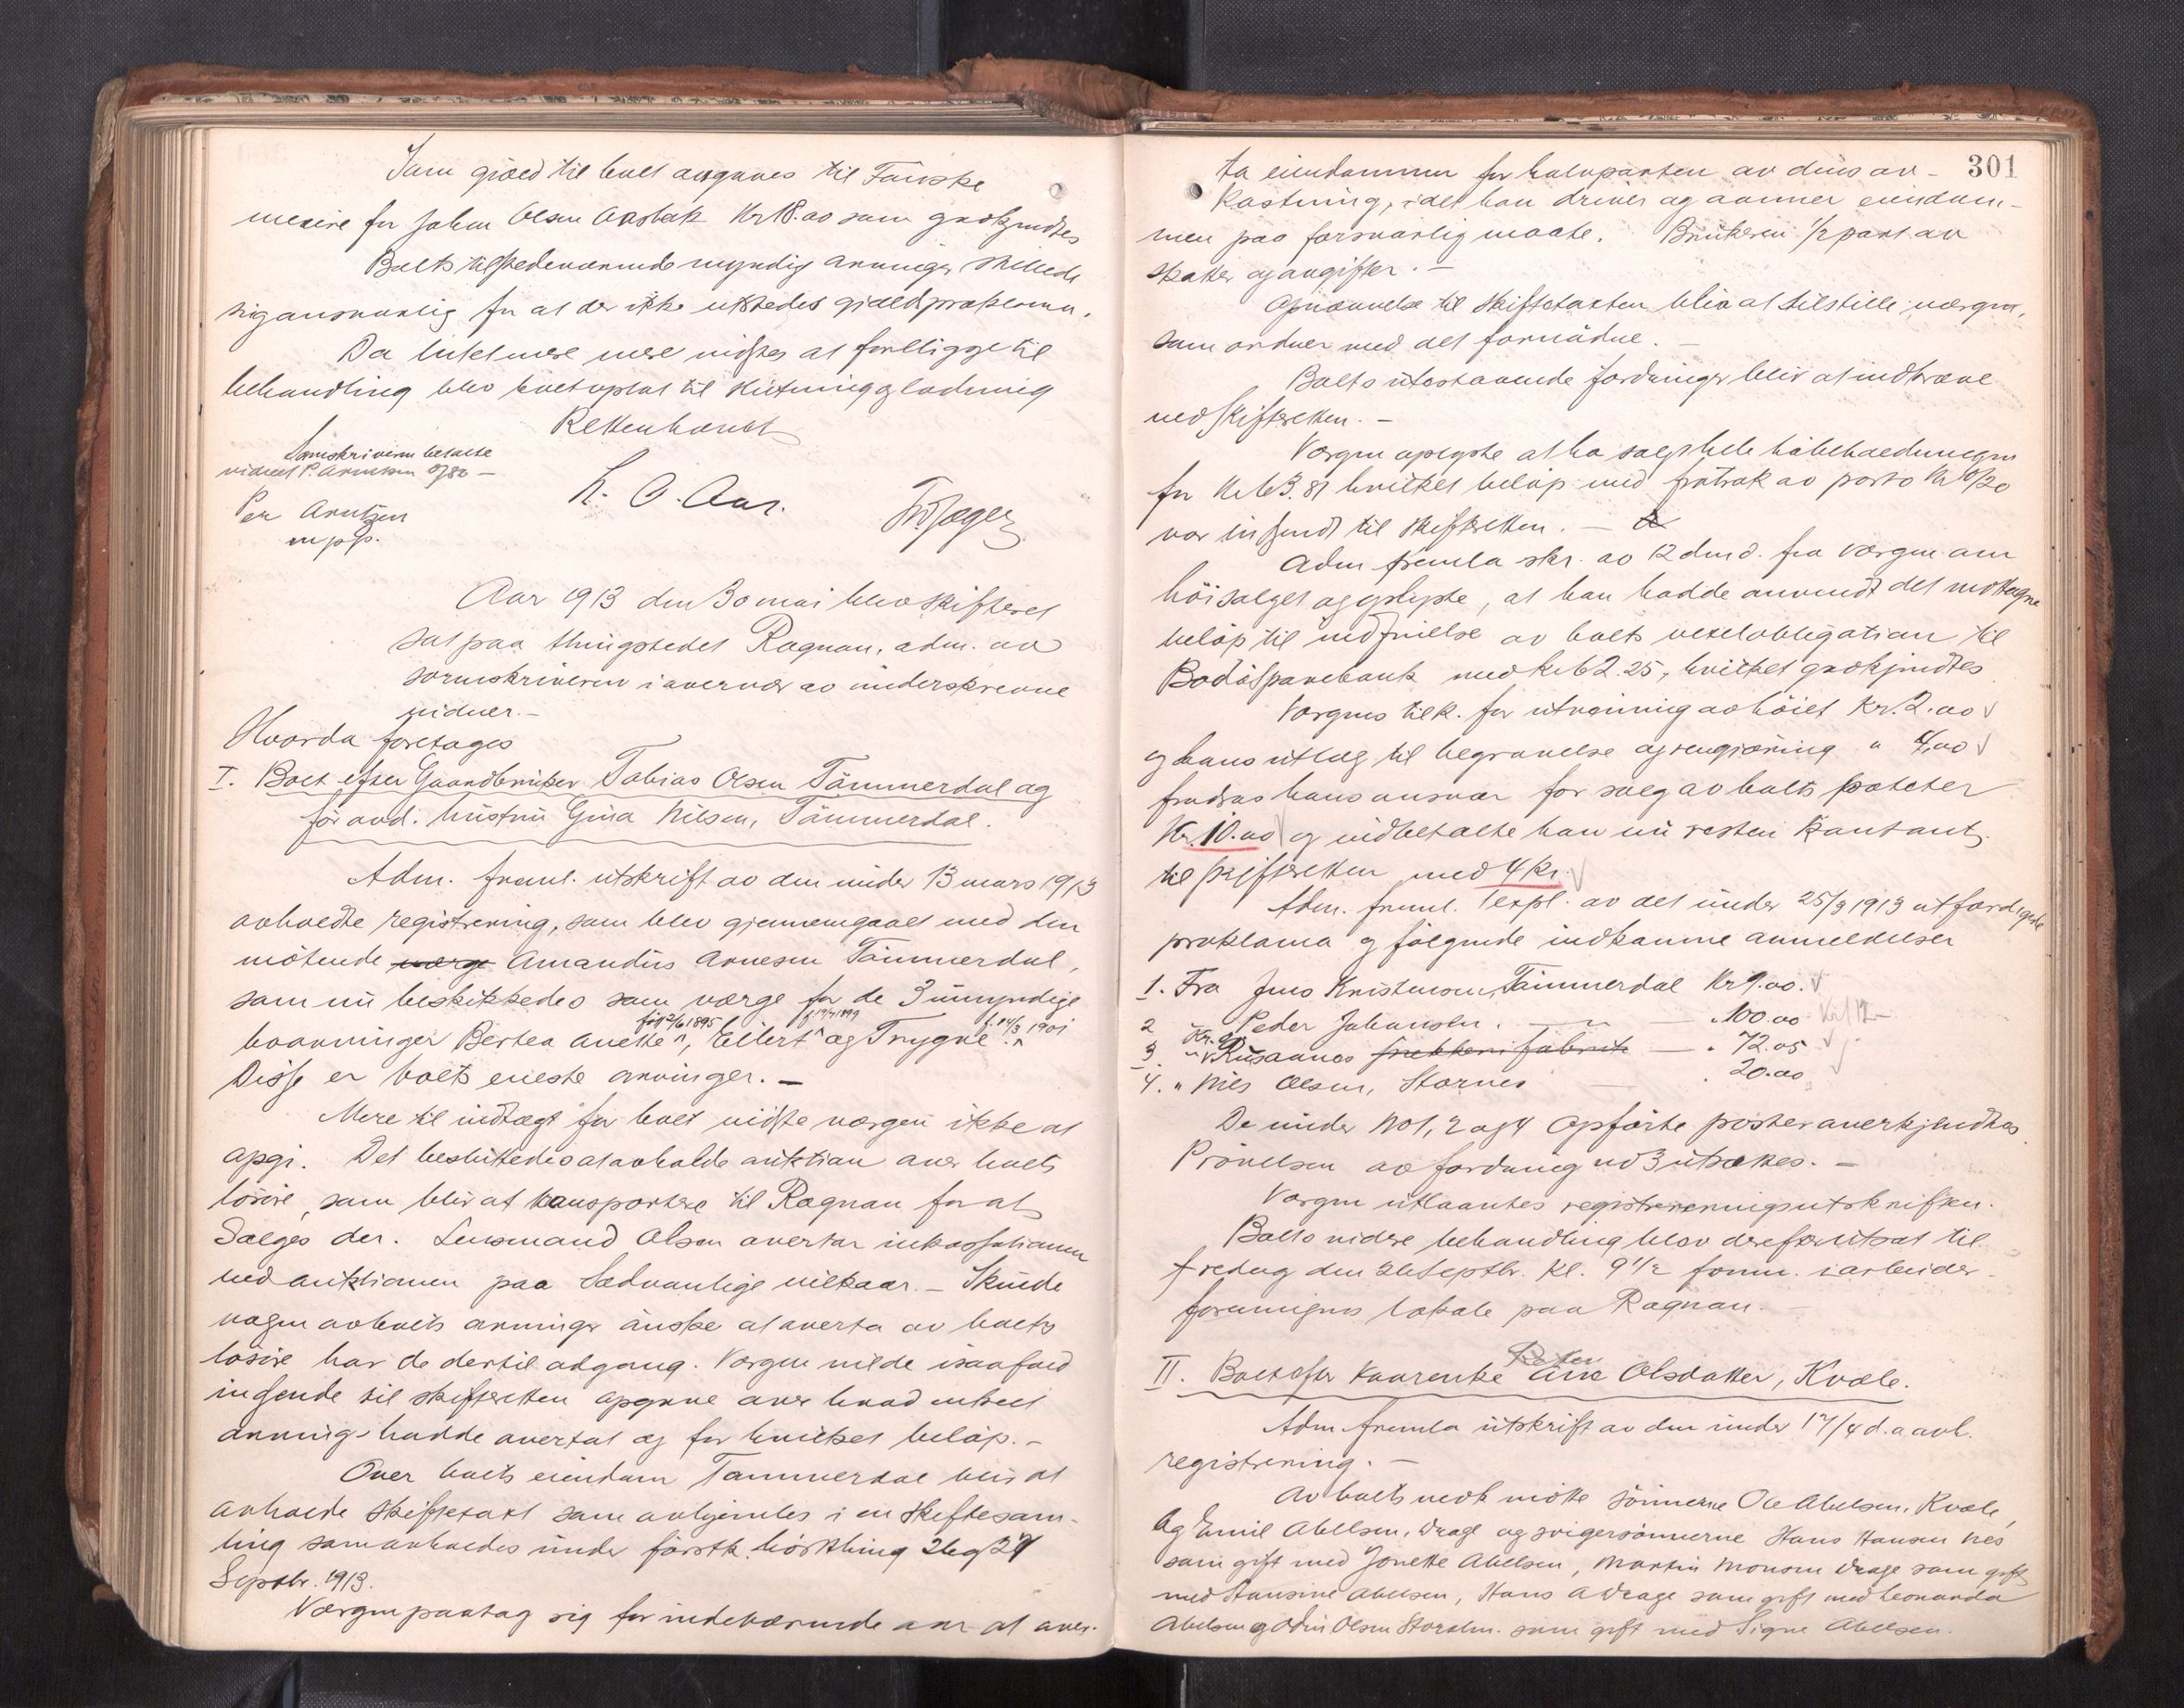 Som gjæld til boet opgaves til Fauske
meieri for Johan Olsen Kr 18.00 som godkjendtes
Boets tilstedeværende myndig arvinger stillede
sig ansvarlig for at der ikke utstedes gjældsproklama.
Da intet mere vidstes at foreligge til
behandling blev boet optat til slutning
Retten hævet
Sorenskriveren betalte
vidnet P. Arntzen 0/80 –
Per Arntzen
m p p.
H. O. Aar.
Aar 1913 den 30 mai blev skifteret
sat paa thingstedet Rognan, adm. av
sorenskriveren i overvær av underskrevne
vidner. –
Hvorda foretages
I. Boet efter Gaardbruker Tobias Olsen Tømmerdal og
før avd. hustru Gina Nilsen, Tømmerdal.
Adm. freml. utskrift av den under 13 mars 1913
avholdte registrering, som blev gjennemgaaet med den
møtende værge Amandus Arnesen Tømmerdal,
som nu beskikkedes som værge for de 3 umyndige
boarvinger Bertea Anette, f. 2/6 1895, Eilert f 1899 og Trygve f. 14/3 1901
Disse er boets eneste arvinger. –
Mere til indtægt for boet vidste værgen ikke at
opgi. Det besluttedes at avholde auktion over boets
løsøre, som blir at transportere til Rognan for at
Sælges der. Lensmand Olsen overtar inkassationen
ved auktionen paa sædvanlige vilkaar. – Skulde
nogen av boets arvinger ønske at overta av boets
løsøre har de dertil adgang. Værgen vilde isaafald
indsende til skifteretten opgave over hvad enhver
arving hadde overtat og for hvilket beløp. –
Over boets eiendom Tømmerdal blir at
avholde skiftetakst som avhjemles i en skiftesam-
ling som avholdes under førstk. høstthing 26 og 27
Septbr. 1913.
Værgen paatog sig for indeværende aar at over-
301
ta eiendommen for halvparten av dens av-
kastning, idet han driver og aanner eiendom-
men paa forsvarlig maate. Brukeren 1/2 part av
skatter og avgifter. –
Opnævnelse til skiftetaxten blir at tilstille værgen,
som ordner med det fornødne. –
Boets utestaaende fordringer blir at indkræve
ved skifteretten. –
Værgen oplyste at ha solgt hele høbeholdningen
for Kr 63.81 hvilket beløp med fratræk av porto Kr 0/20
var indsendt til skifteretten. –
Adm fremla skr. av 12 dmd. fra værgen om
høisalget og oplyste, at han hadde anvendt det mottagne
beløp til indfrielse av boets vexelobligation til
Bodø sparebank med Kr 62.25, hvilket godkjendtes.
Værgens tilk. for utveining av høiet Kr. 2.00
og hans utlæg til begravelse og rengjøring " 4,00
fradras hans ansvar for salg av boets poteter
Kr. 10.00 og indbetalte han nu resten kontant
til skifteretten med 4 kr.
Adm. freml. 1 expl. av det under 25/3 1913 utfærdigede
proklama og følgende indkomne anmeldelser
1. Fra Jens Kristensen, Tømmerdal Kr 9.00.
2 Peder Johansen. — " — . 100.00
3 " Kr. Rusaanes — . 72.05
4. " Nils Olsen, Stornes — . 20.00
De under No 1, 2 og 4 opførte poster anerkjendtes.
Prøvelsen av fordring no 3 utsættes. –
Værgen utlaantes registreringsutskriften.
Boets videre behandling blev derefter utsat til
fredag den 26 Septbr. kl. 9 1/2 form. i arbeider-
foreningens lokale paa Rognan. –
II. Boet efter Kaarenke Ane Olsdatter, Kvæle.
Adm fremla utskrift av den under 17/4 d.a. avh.
registrering. –
Av boets vedk møtte sønnerne Ole Abelsen, Kvæle,
og Emil Abelsen, Drage og svigersønnerne Hans Hansen Nes
som gift med Jonette Abelsen, Martin Monsen Drage som gift
med Hansine Abelsen, Hans A Drage som gift med Leonarda
Abelsen og Odin Olsen som gift med Signe Abelsen.